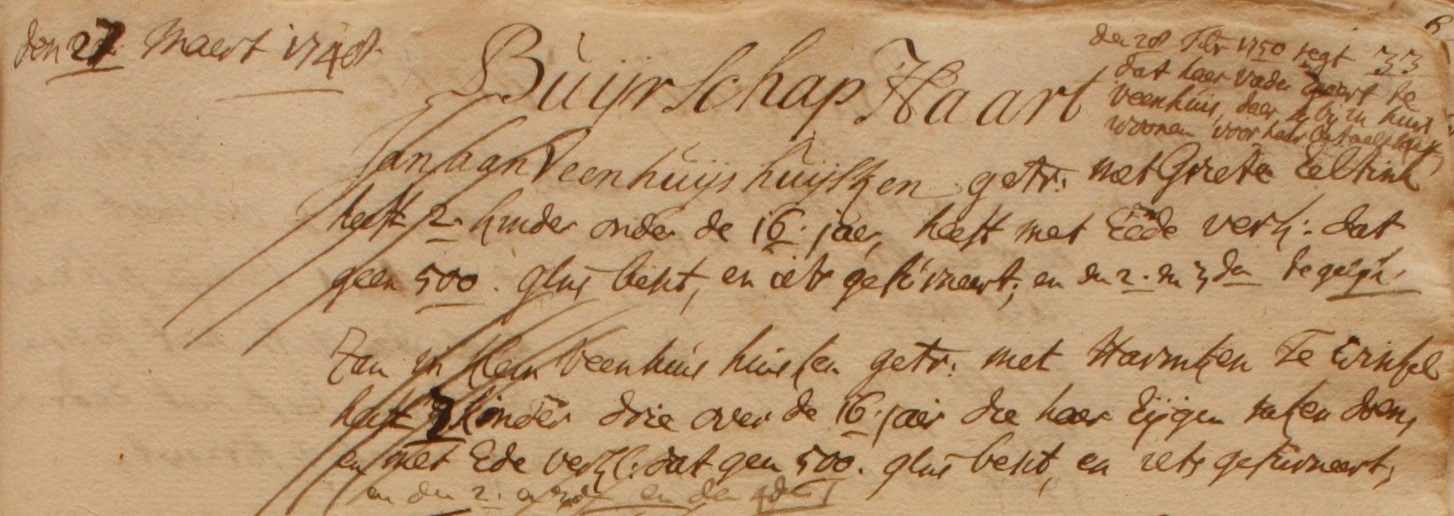 den 27 Maert 1748
Buijrschap Haart
den 28 Febr 1750 segt 33
dat haer vader Evert te
veenhuis, daer sy bij in huis
woonen voor haer betaelt heeft
Jan aan Veenhuijs huijsken getr: met Griete Eeltink
heeft 2 kinder onder de 16 jaer, heeft met Eede verkl: dat
geen 500. glns besit, en iets gefurneert, en den 2. en 3den
Jan in klein Veenhuis huisken getr: met Harmken Te Winkel
heeft 7 kinder drie over de 16 jaer die haer Eijgen saken doen,
en met Ede verkl: dat gen 500. glns besit, en iets gefurneert,
en den 2. en 3den en den 4de